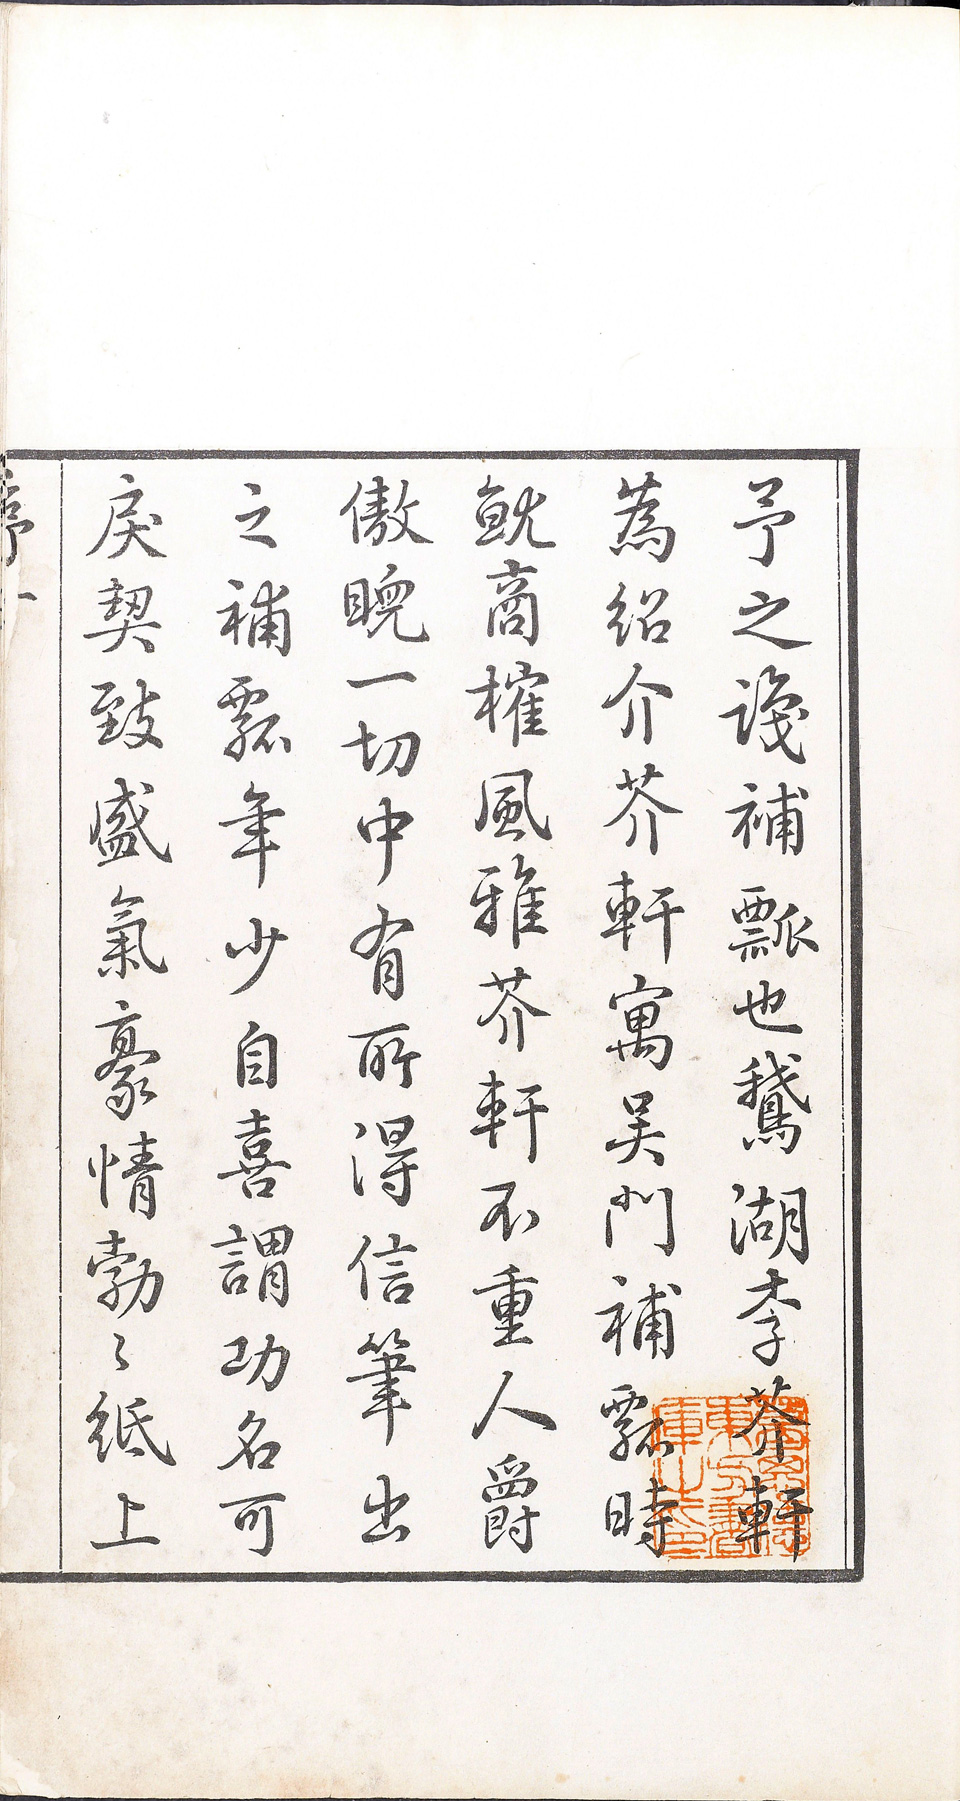 予之識補瓢也鵝湖李芥軒
為紹介芥軒寓吴門補瓢時
就商榷風雅芥軒不重人爵
傲睨一切中有所淂信筆出
之補瓢年少自喜謂功名可
戾契致盛氣豪情勃〻紙上
序一